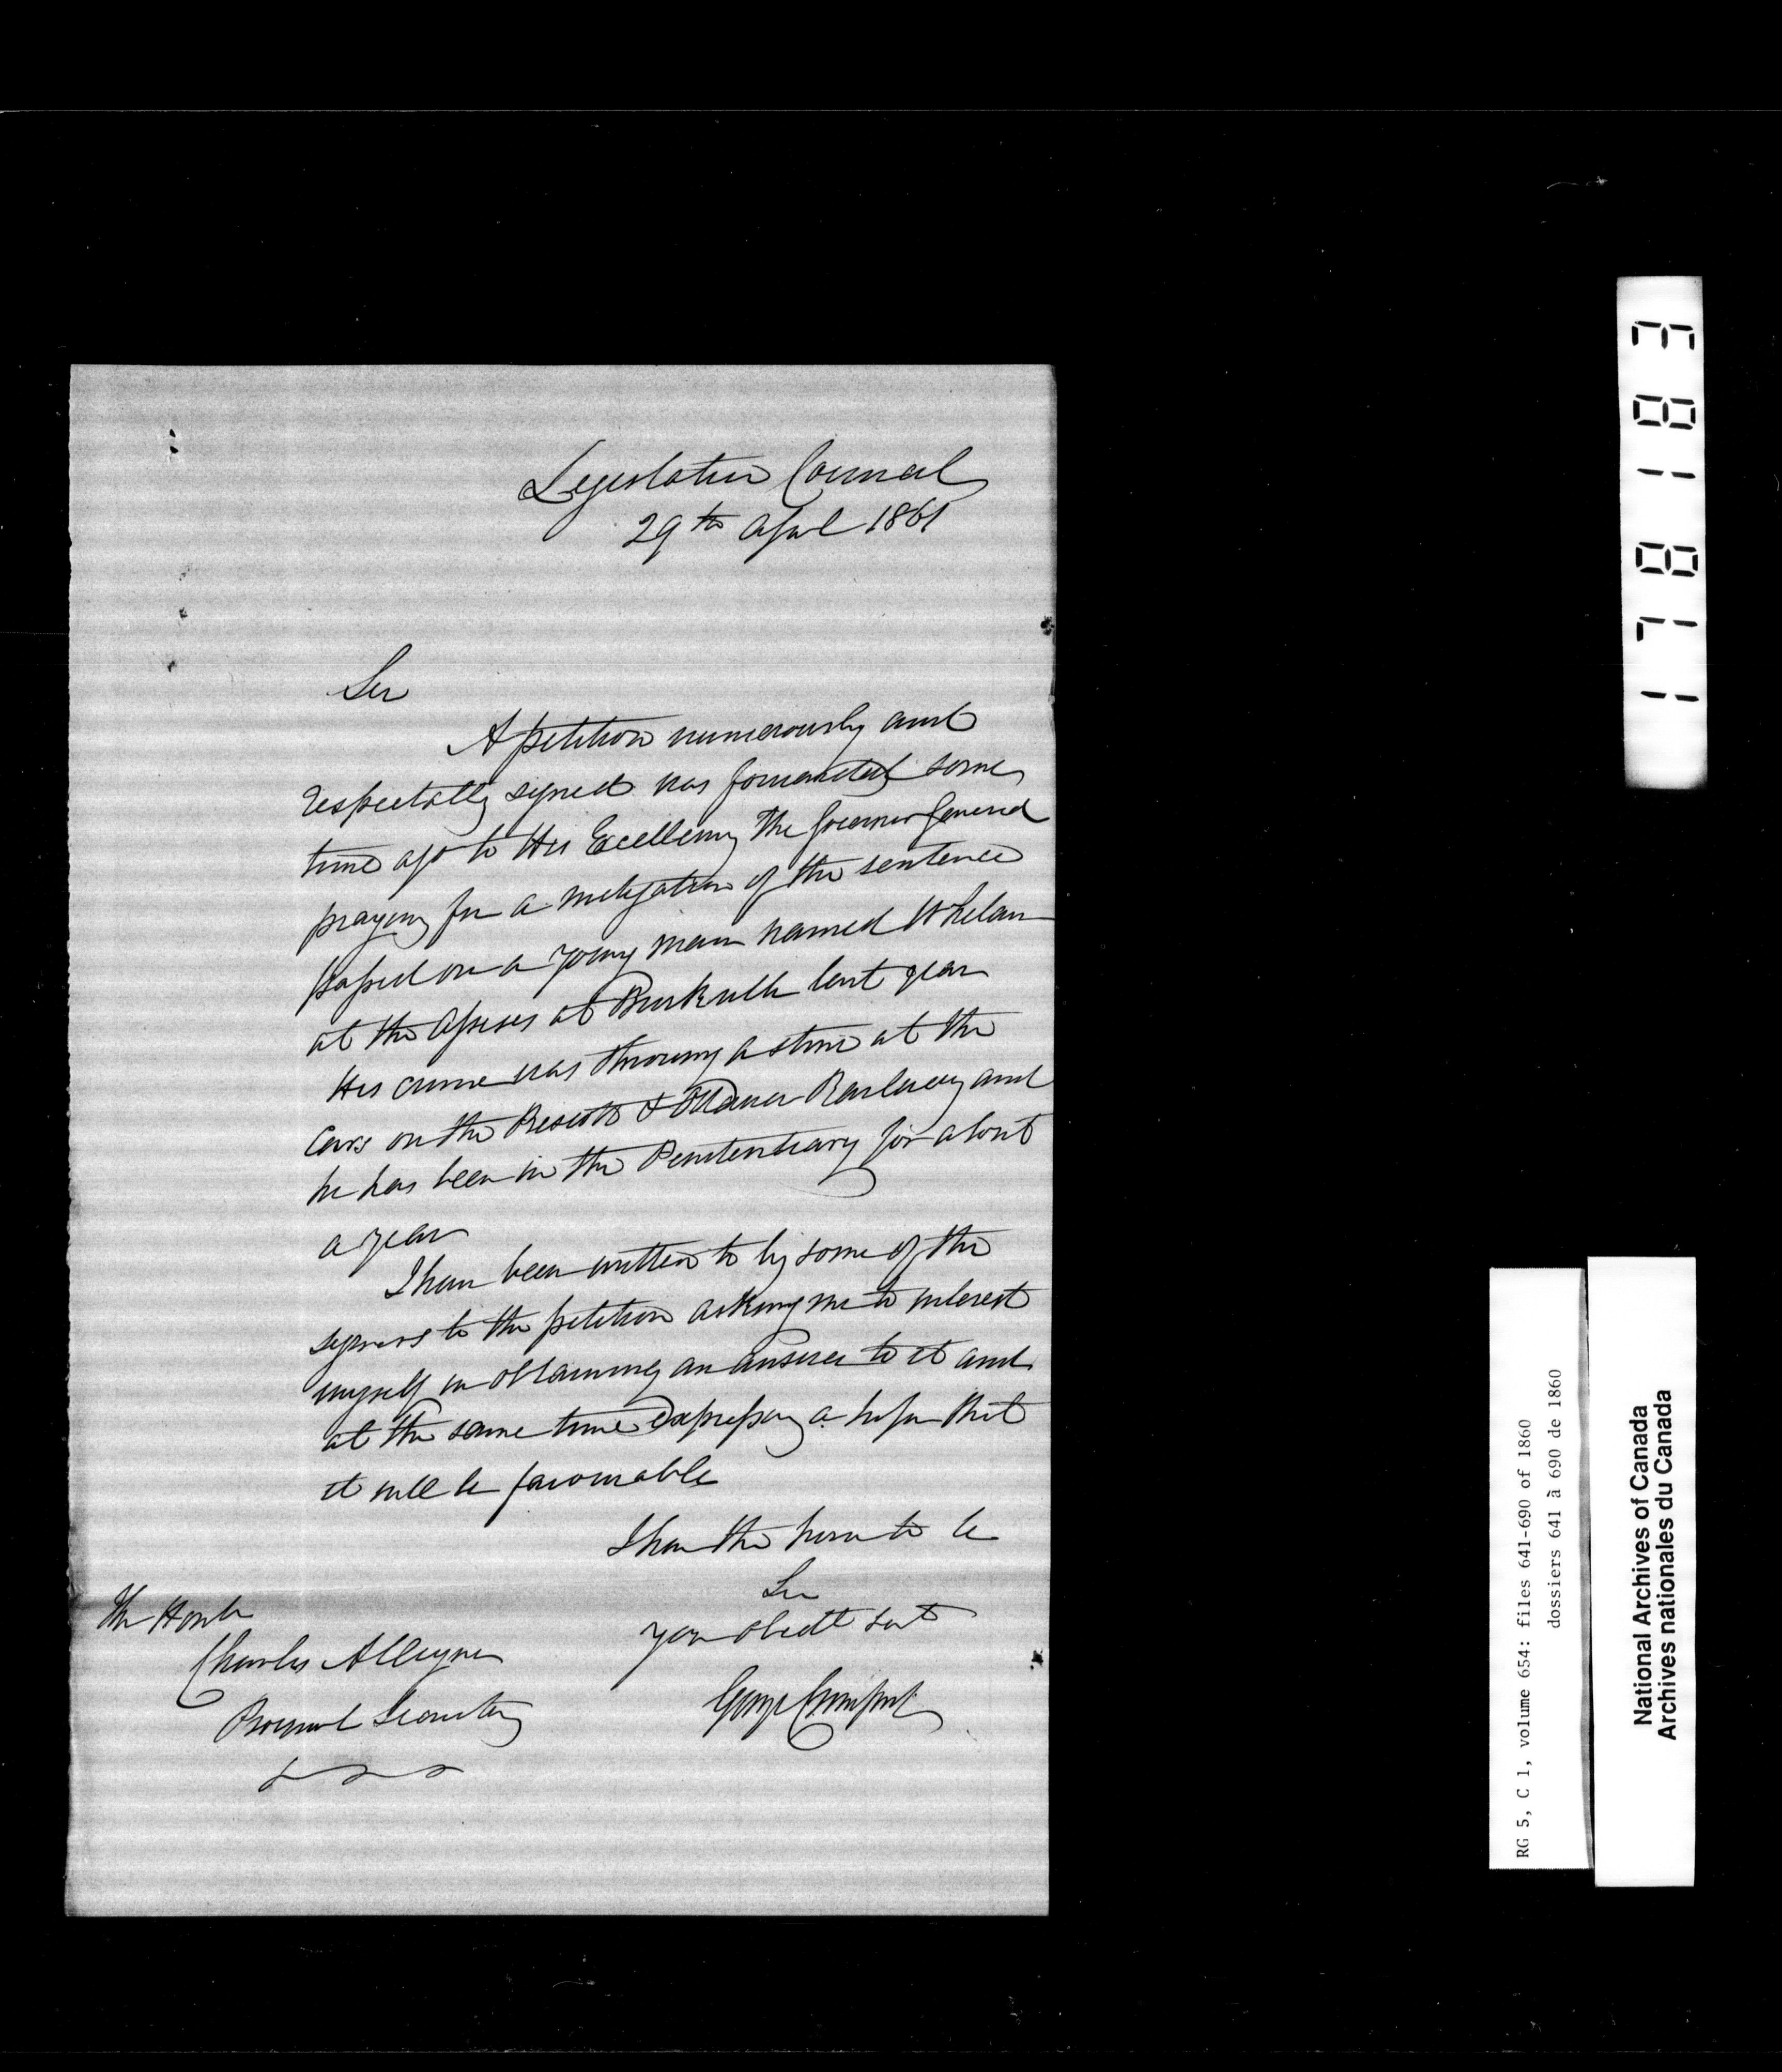 Legislative Council
29th April 1861
Sir
A petition numerously and
respectably signed was forwarded some
time ago to His Excellency the Governor General
praying for a mitigation of the sentence
passed on a young man named Whelan
at the Assizes at Brockville last year
His crime was throwing a stone at the
cars on the Prescott & Ottawa Railway and
he has been in the Penitentiary for about
a year
I have been written to by some of the
signers to the petition asking me to interest
myself in obtaining an answer to it and
at the same time expressing a hope that
it will be favourable
I have the honor to be
Sir
your obedt servt
George Crawford
The Honble
Charles Alleyn
Provincial Secretary
171813
RG 5, C 1, volume 654: files 641-690 of 1860
dossiers 641 à 690 de 1860
National Archives of Canada
Archives nationales du Canada